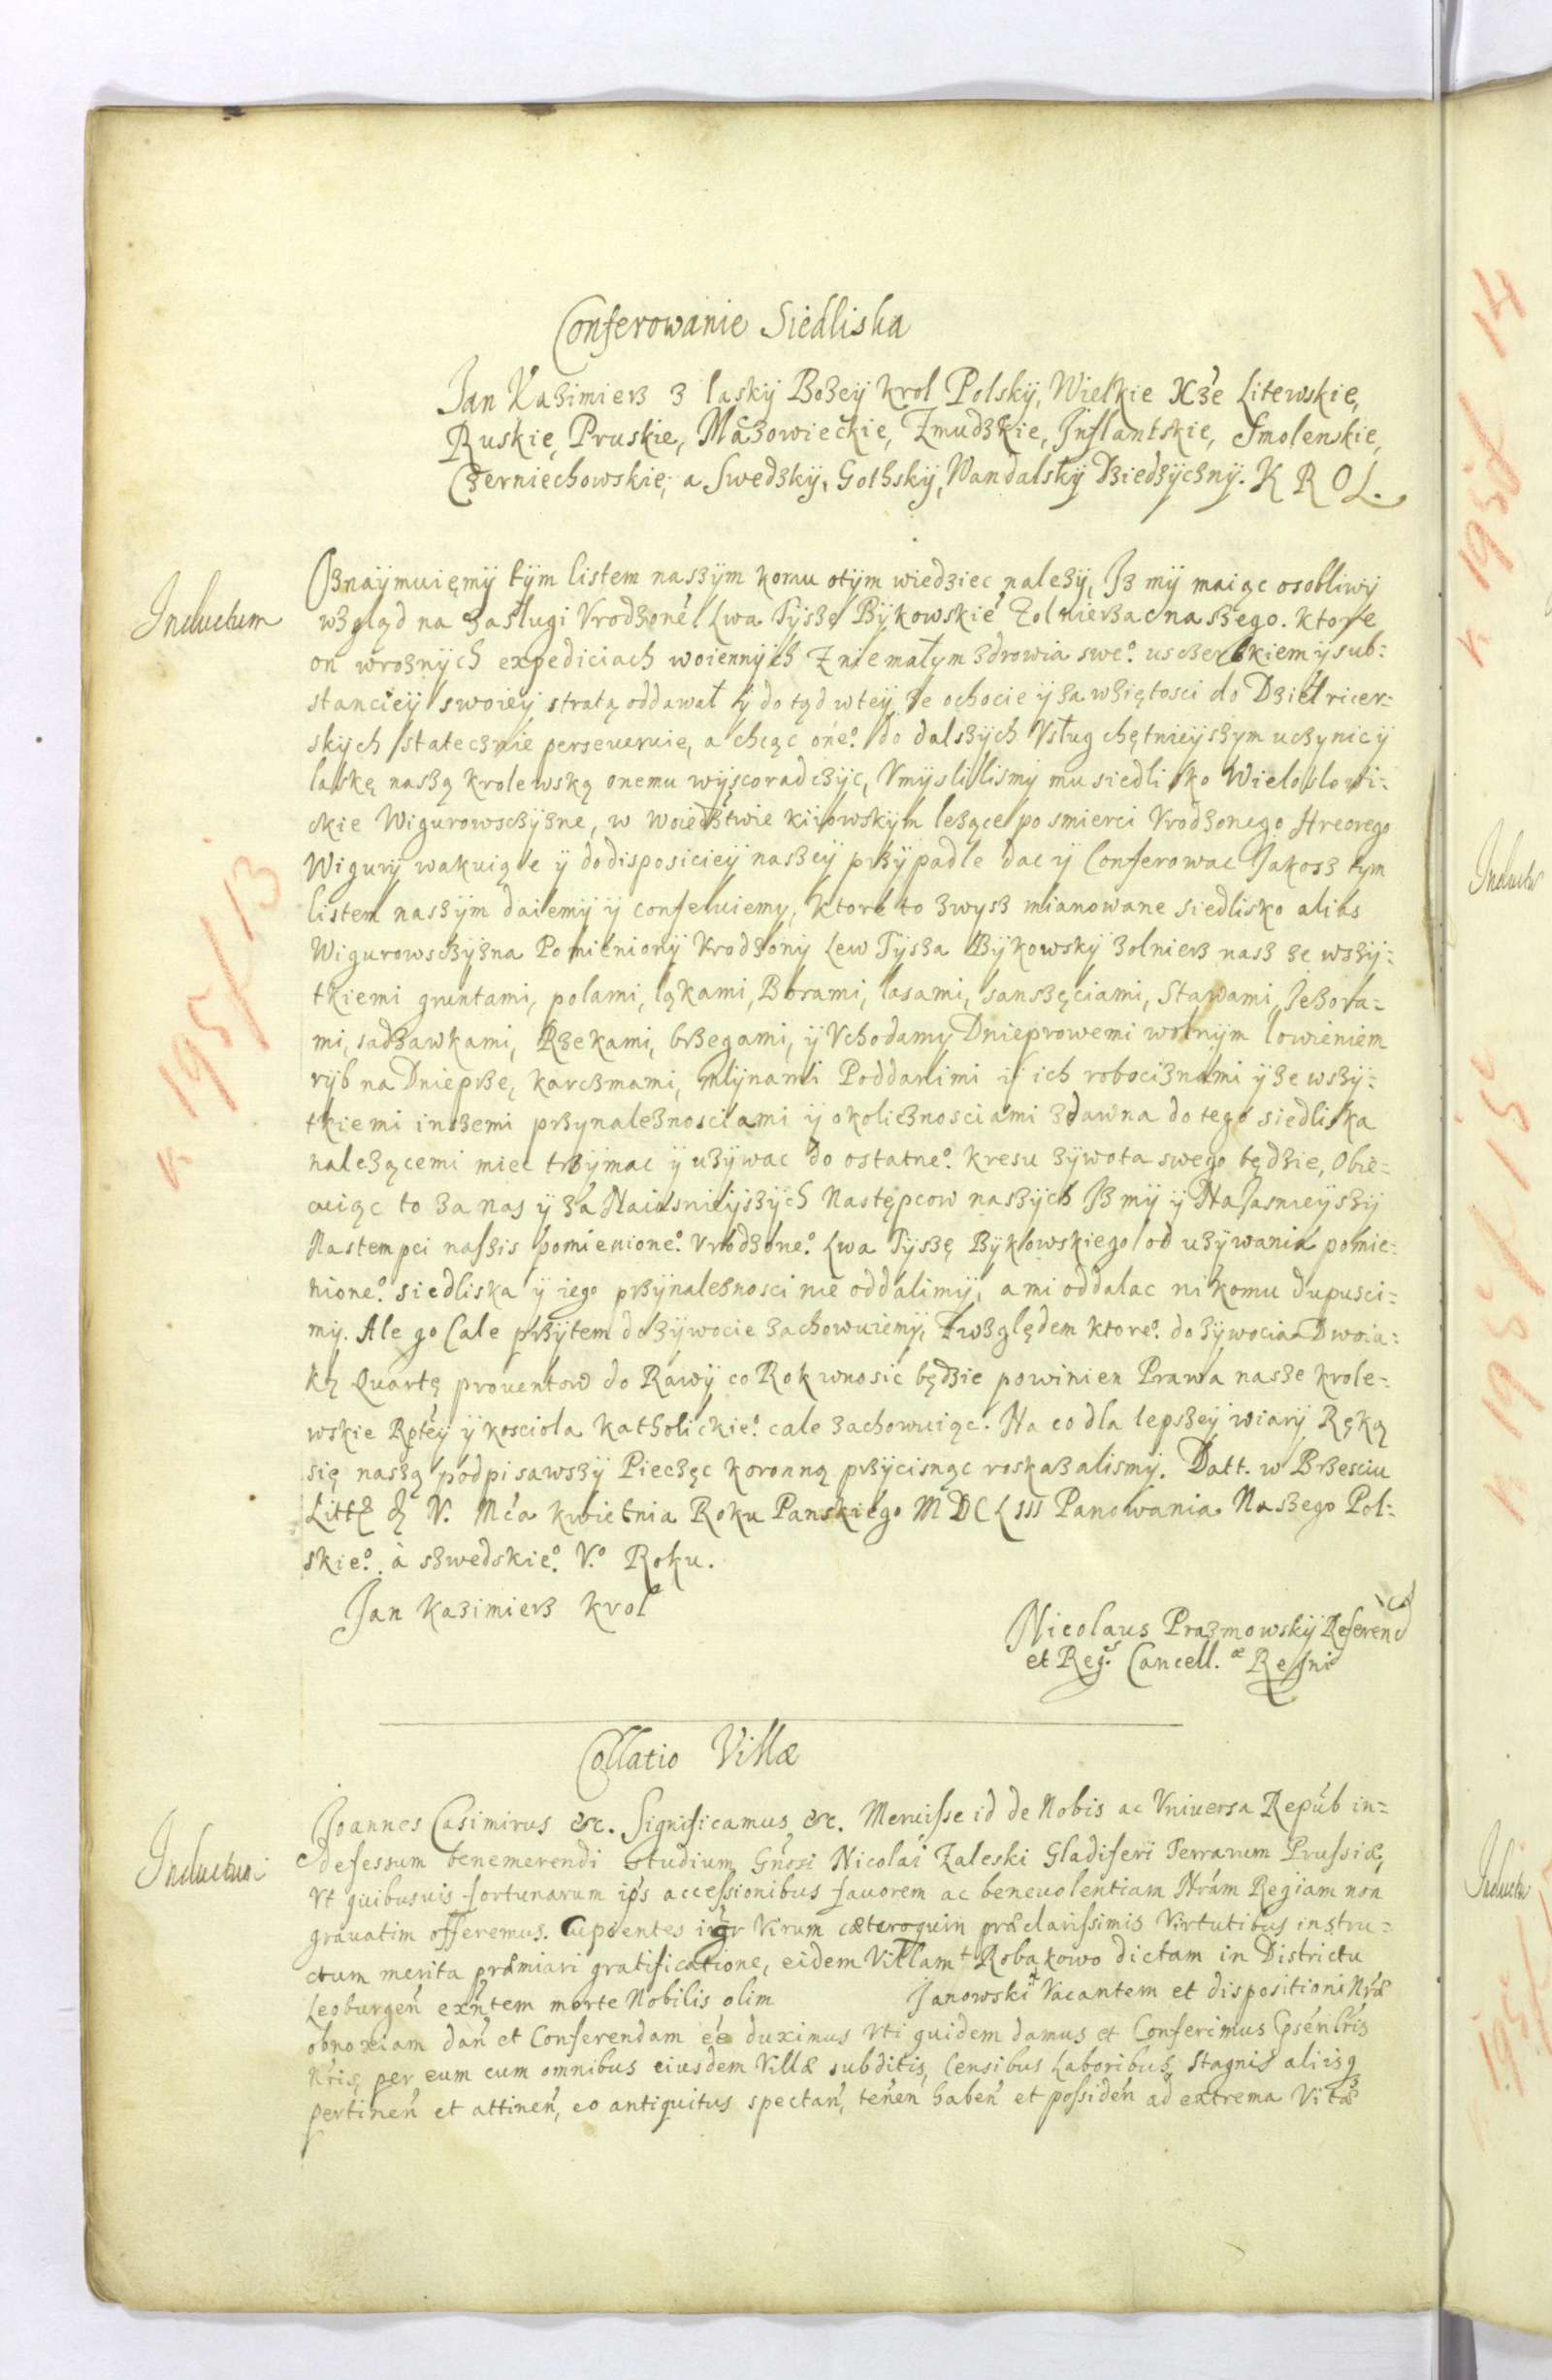 Conferowanie Siedliska
Jan Kazimierz z laskÿ Bozeÿ krol Polskÿ, Wielkie Xże Litewskie,
Ruskie, Pruskie, Mazowieckie, Zmudzkie, Jnflantskie, Smolenskie,
Czerniechowskie, a Swedzkÿ, Gothskÿ, Wandalskÿ Dziedzÿcznÿ. K R O L.
Inductum
Oznaÿmuięmÿ tÿm listem naszÿm komu otÿm wiedziec nalezÿ, Jz mÿ maiąc osobliwÿ
wzgląd na zaslugi Vrodzone° Lwa Tÿsze Bÿkowskie° Zolnierza naszego. ktore
on wroznÿch expediciach woiennÿch Z niemałym zdrowia swe°. usczerbkiem ÿ sub=
stancieÿ swoieÿ stratą oddawał ÿ do tąd wteÿ ze ochocie ÿ zawziętosci do Dziel ricer=
skÿch statecznie perseveruie, a chcąc one°. do dalszÿch Vsług chętnieÿszym uczynic ÿ
laskę naszą krolewską onemu wÿscoradczÿc, Vmÿslilismÿ mu siedlisko Wieloslowi=
ckie Wigurowsczÿzne, w woiedztwie kiiowskÿm lezące po smierci Vrodzonego Hreorego
Wigurÿ wakuiące ÿ dodisposicieÿ naszeÿ przÿpadle dac ÿ Conferowac Jakosz tym
listem naszÿm daiemÿ ÿ conferuiemy, ktore to zwysz mianowane siedlisko alias
Wigurowsczÿzna Pomienionÿ Vrodzonÿ Lew Tÿsza Bÿkowskÿ zolnierz nasz ze wszÿ=
tkiemi gruntami, polami, ląkami, Borami, lasami, sanszęciami, Stawami, Jeziora=
mi, sadzawkami, Rzekami, brzegami, ÿ Vchodamy Dnieprowemi wolnÿm lowieniem
rÿb na Dnieprze, karczmami, mlÿnami Poddanimi ÿ ich robociznami ÿ ze wszÿ=
tkiemi inszemi przynaleznosciami ÿ okolicznosciami zdawna do tego siedliska
nalezącemi miec trzÿmac ÿ uzÿwac do ostatne°. kresu zÿwota swego będzie, Obie=
cuiąc to za nas ÿ za Naiasnieÿszÿch Następcow naszÿch Jz mÿ ÿ Naiasnieÿszÿ
Nastempci naszis pomienione°. Vrodzone°. Lwa Tÿszę Bÿkowskiego od uzÿwania pomie=
nione°. siedliska ÿ iego przÿnaleznosci nie oddalimÿ, ami oddalac nikomu dupusci=
mÿ. Ale go Cale przÿtem dozÿwocie zachowuiemÿ, Zwzględem ktore°. dozÿwocia Dwoia=
ką Quartę proventow do Rawÿ co Rok wnosic będzie powinien Prawa nasze krole=
wskie Rpteÿ ÿ kosciola katholickie°. cale zachowuiąc. Na co dla lepszeÿ wiarÿ Ręką
się naszą podpisawszÿ Pieczęc koronną przÿcisnąc roskazalismÿ. Datt. w Brzesciu
Litt d V. Mca kwietnia Roku Panskiego MDCLIII Panowania Naszego Pol=
skie°. à szwedskie°. V.° Roku.
Jan Kazimierz krol
Nicolaus Prazmowskÿ Referend
et Reg. Cancell. æ Regni
Collatio Villæ
Inductum
Joannes Casimirus &c. Significamus &c. Meruisse id de Nobis ac Vniversa Repub in=
defessum benemerendi studium Gnosi Nicolai Zaleski Gladiferi Terrarum Prussiæ,
Vt quibusuis fortunarum ips accessionibus favorem ac benevolentiam Nram Regiam non
gravatim offeremus. Cupientes igr Virum cæteroquin præclarissimis Virtutibus instru=
ctum merita præmiari gratificatione, eidem Villam Robąkowo dictam in Districtu
Leoburgen exntem morte Nobilis olim Janowski Vacantem et dispositioni Nræ
obnoxiam dan et Conferendam ee duximus Vti quidem damus et Conferimus Psenlris
Nris, per eum cum omnibus eiusdem Villæ subditis, Censibus Laboribus, Stagnis aliisq
pertinen et attinen, eo antiquitus spectan, tenen haben et possiden ad extrema Vitæ